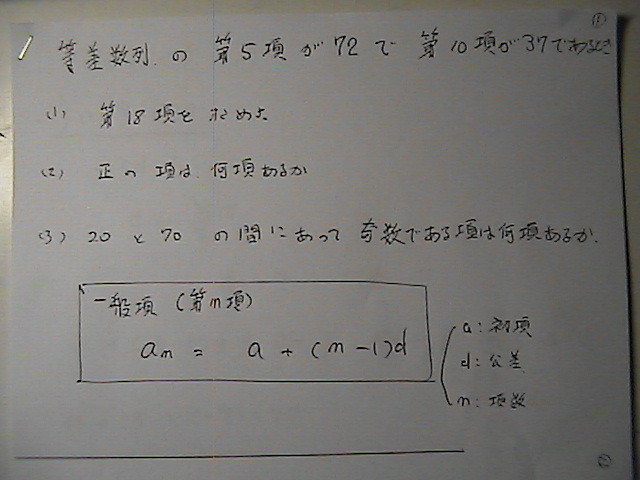 (1)
等差数列の第5項が72で第10項が37であるとき
(1) 第18項を求めよ
(2) 正の項は、何項あるか
(3) 20と70の間にあって奇数である項は何項あるか.
一般項(第n項)
an = a + (n-1)d
a:初項
d:公差
n:項数